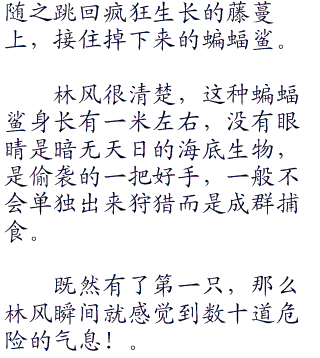 随之跳回疯狂生长的藤蔓
上，接住掉下来的蝙蝠鲨。
林风很清楚，这种蝙蝠
鲨身长有一米左右，没有眼
睛是暗无天日的海底生物，
是偷袭的一把好手，一般不
会单独出来狩猎而是成群捕
食。
既然有了第一只，那么
林风瞬间就感觉到数十道危
险的气息！。